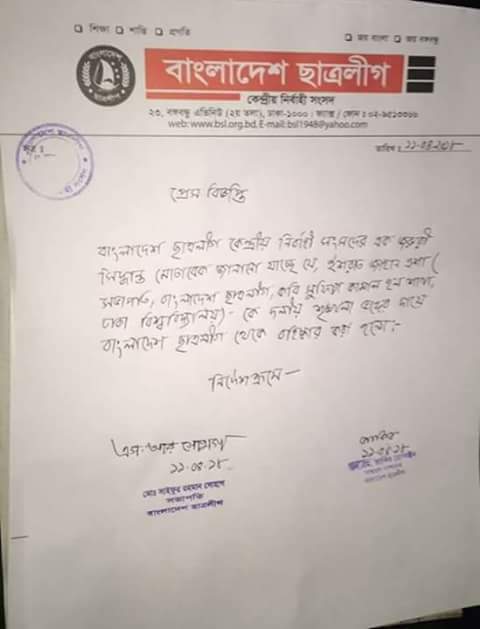 ❑ শিক্ষা ❑ শান্তি ❑ প্রগতি
❑ জয় বাংলা ❑ জয় বঙ্গবন্ধু
বাংলাদেশ ছাত্রলীগ
কেন্দ্রীয় নির্বাহী সংসদ
২৩, বঙ্গবন্ধু এভিনিউ (২য় তলা), ঢাকা-১০০০। ফ্যাক্স / ফোন : ০২-৯৫১৩৩৬৬
web:www.bsl.org.bd.E-mail:bsl1948@yahoo.com
সূত্র :
তারিখ : ১১-০৪-২০১৮
প্রেস বিজ্ঞপ্তি
বাংলাদেশ ছাত্রলীগ কেন্দ্রীয় নির্বাহী সংসদের এক জরুরী
সিদ্ধান্ত মোতাবেক জানানো যাচ্ছে যে, ইশরাত জাহান এশা (
সভাপতি, বাংলাদেশ ছাত্রলীগ, কবি সুফিয়া কামাল হল শাখা,
ঢাকা বিশ্ববিদ্যালয়)- কে দলীয় শৃঙ্খলা ভঙ্গের দায়ে
বাংলাদেশ ছাত্রলীগ থেকে বহিষ্কার করা হলো।-
নির্দেশক্রমে—
এস. আর সোহাগ
১১.০৪.১৮
মোঃ সাইফুর রহমান সোহাগ
সভাপতি
বাংলাদেশ ছাত্রলীগ
জাকির
১১-০৪-১৮
এস.এম. জাকির হোসাইন
সাধারণ সম্পাদক
বাংলাদেশ ছাত্রলীগ